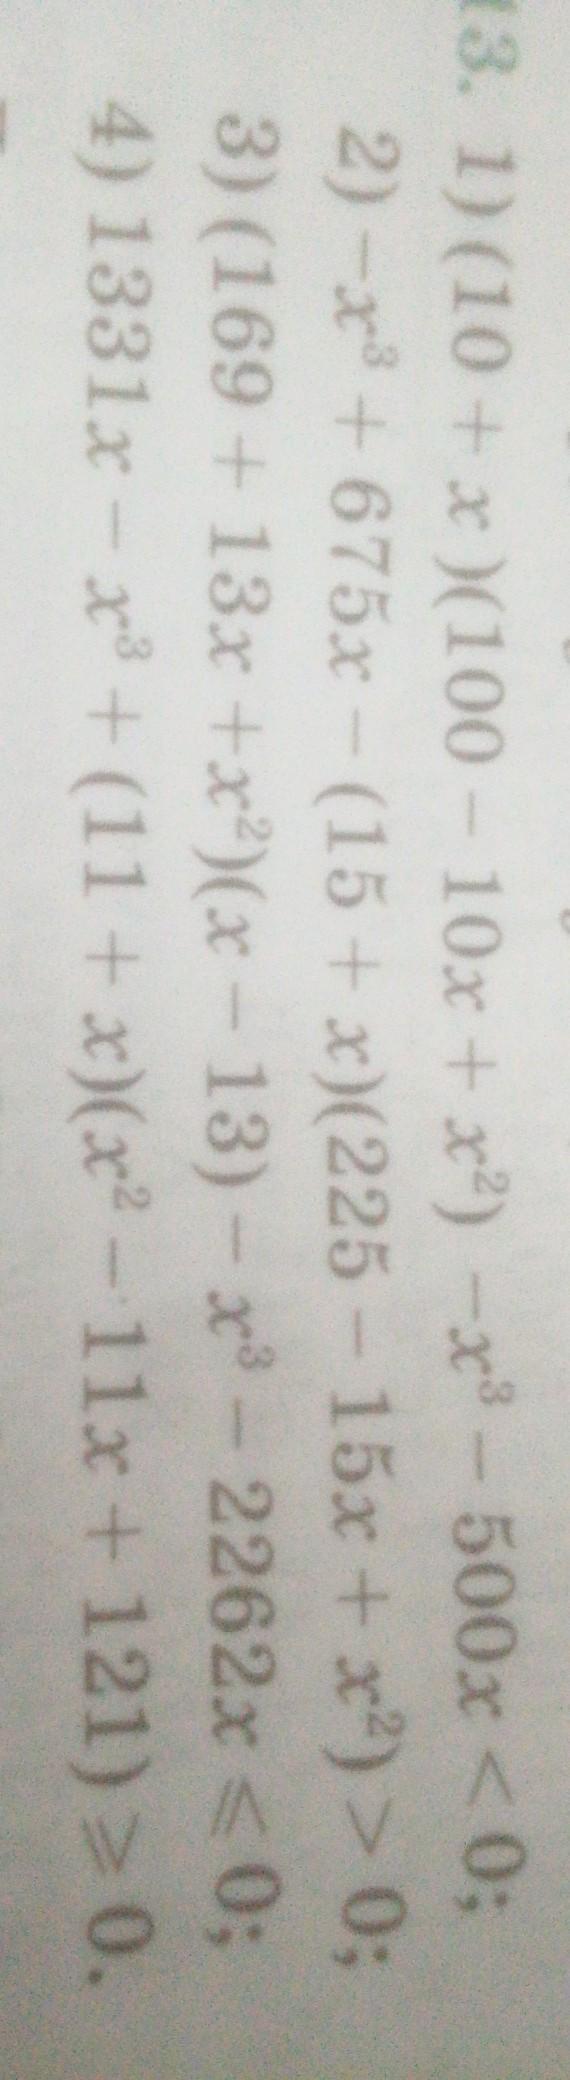 13. 1) (10 + x)(100 − 10x + x²) −x³ − 500x < 0;
2) −x³ + 675x − (15 + x)(225 − 15x + x²) > 0;
3) (169 + 13x +x²)(x − 13) − x³ − 2262x ⩽ 0;
4) 1331x − x³ + (11 + x)(x² − 11x + 121) ⩾ 0.